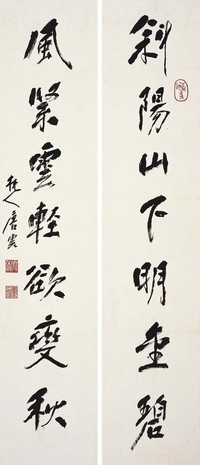 斜陽山下明金碧
風緊雲輕欲變秋
杭人唐雲